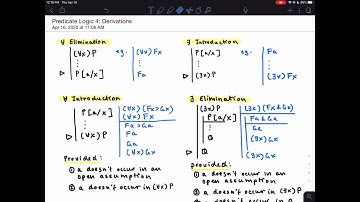 12:18 PM Thu Apr 16
Predicate Logic 4: Derivations
Apr 16, 2020 at 11:06 AM
∀ Elimination
(∀x)P
⋮
▷ P[a/x]
e.g.
(∀x)Fx
⋮
Fa
∃ Introduction
P[a/x]
⋮
▷ (∃x)P
e.g.
Fa
⋮
(∃x)Fx
∀ Introduction
P[a/x]
⋮
▷ (∀x)P
(∀x)(Fx⊃Gx)
(∀x)Fx
Fa⊃Ga
Fa
Ga
(∀x)Gx
Provided:
① a doesn't occur in an
open assumption
② a doesn't occur in (∀x)P
∃ Elimination
(∃x)P
P[a/x]
⋮
Q
▷ Q
(∃x)(Fx&Gx)
Fa&Ga
Ga
(∃x)Gx
(∃x)Gx
provided:
① a doesn't occur in an
open assumption
② a doesn't occur in (∃x)P